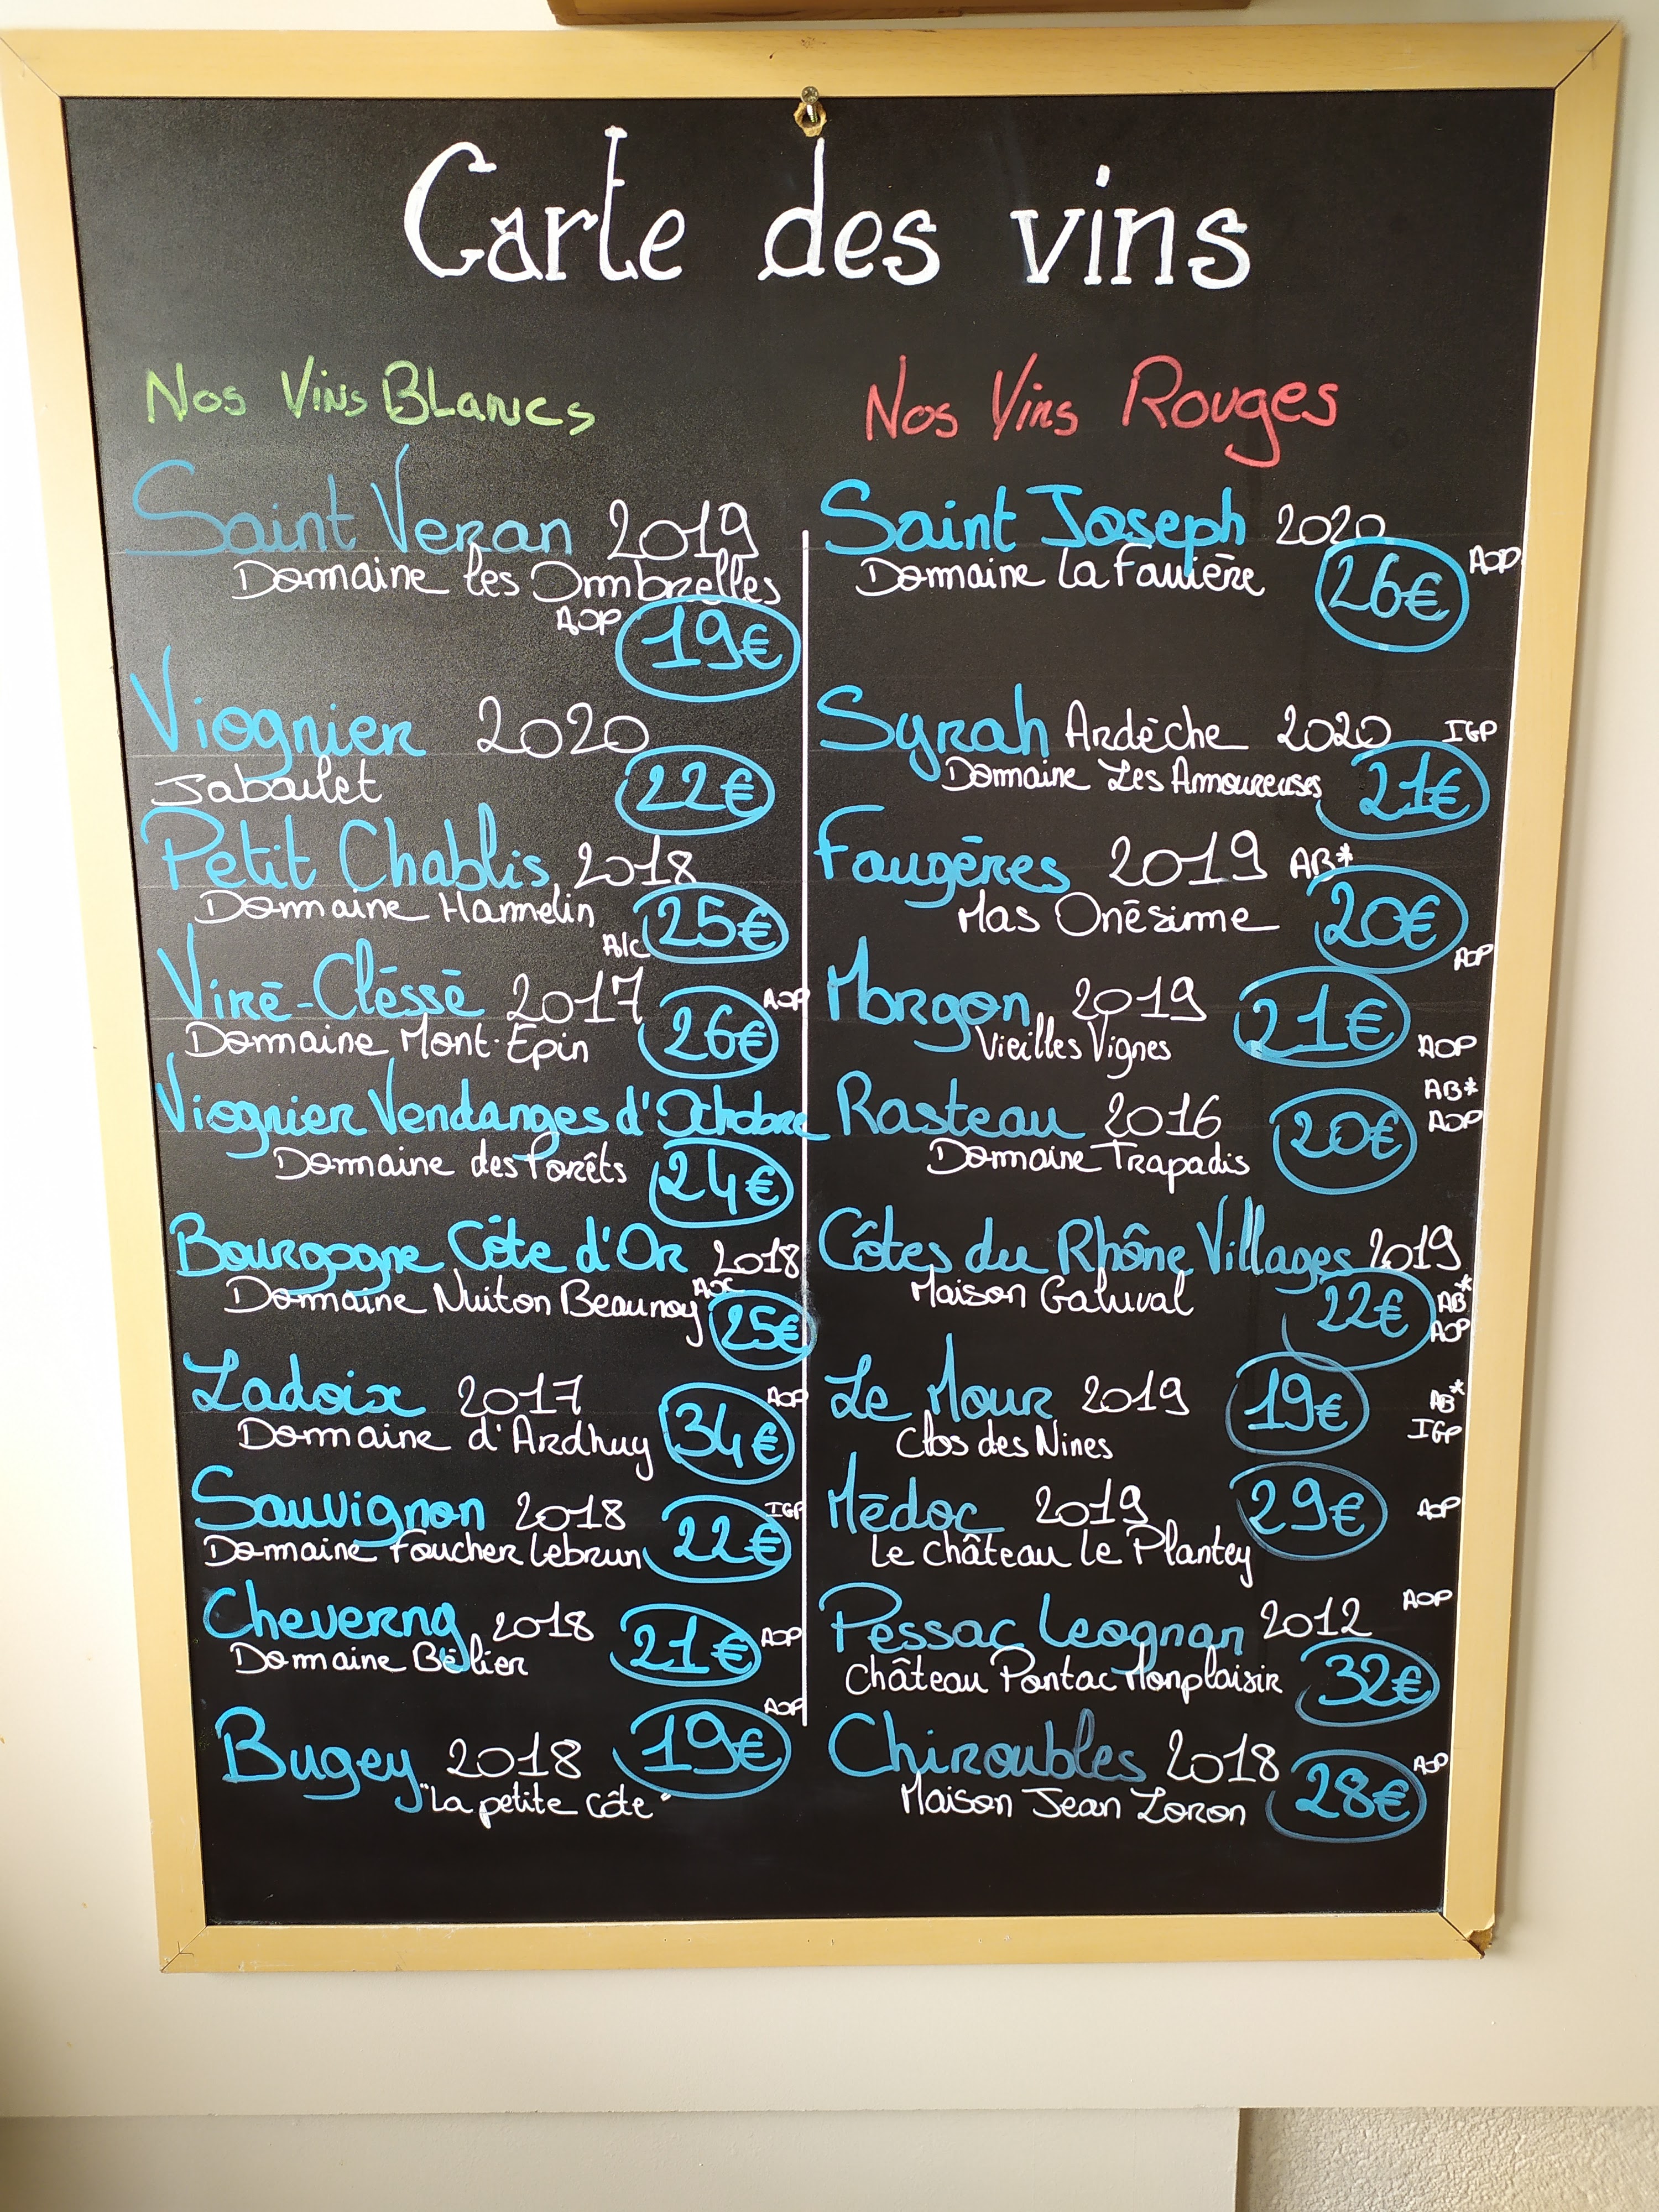 Carte des vins
Nos Vins Blancs
Saint Veran 2019
Domaine les Ombrelles
AOP 19€
Viognier 2020
Jaboulet 22€
Petit Chablis 2018
Domaine Hamelin 25€
Viré-Cléssé 2017 AOP
Domaine Mont-Epin 26€
Viognier Vendanges d'Octobre
Domaine des Forêts 24€
Bourgogne Côte d'Or 2018
Domaine Nuiton Beaunoy AOC 25€
Ladoix 2017 AOP
Domaine d'Ardhuy 34€
Sauvignon 2018 IGP
Domaine Foucher Lebrun 22€
Cheverny 2018 21€ AOP
Domaine Bélier
Bugey 2018 19€ AOP
"La petite côte"
Nos Vins Rouges
Saint Joseph 2020
Domaine La Favière 26€ AOP
Syrah Ardèche 2020 IGP
Domaine Les Amoureuses 21€
Faugères 2019 AB*
Mas Onésime 20€
AOP
Morgon 2019 21€
Vieilles Vignes AOP
Rasteau 2016 20€ AB*
Domaine Trapadis AOP
Côtes du Rhône Villages 2019
Maison Galuval 22€ AB*
AOP
Le Mour 2019 19€ AB*
Clos des Nines IGP
Médoc 2019 29€ AOP
Le Château Le Plantey
Pessac Leognan 2012 AOP
Château Pontac Monplaisir 32€
Chiroubles 2018 AOP
Maison Jean Loron 28€